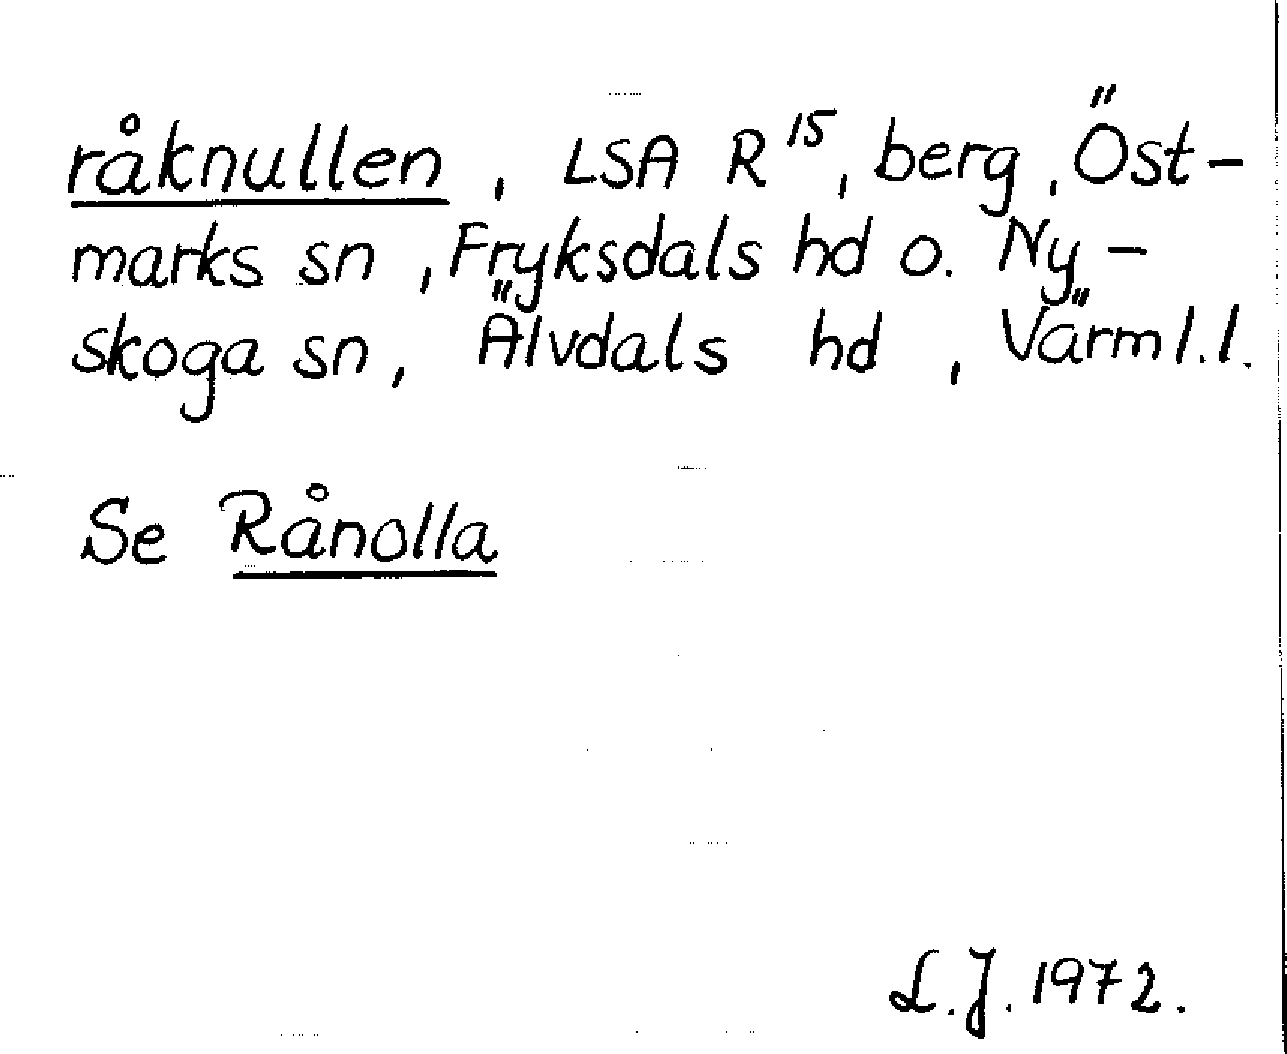 råknullen, LSA R¹⁵, berg, Öst-
marks sn, Fryksdals hd o. Ny-
skoga sn, Älvdals hd, Värml.l.
Se Rånolla
L.J. 1972.